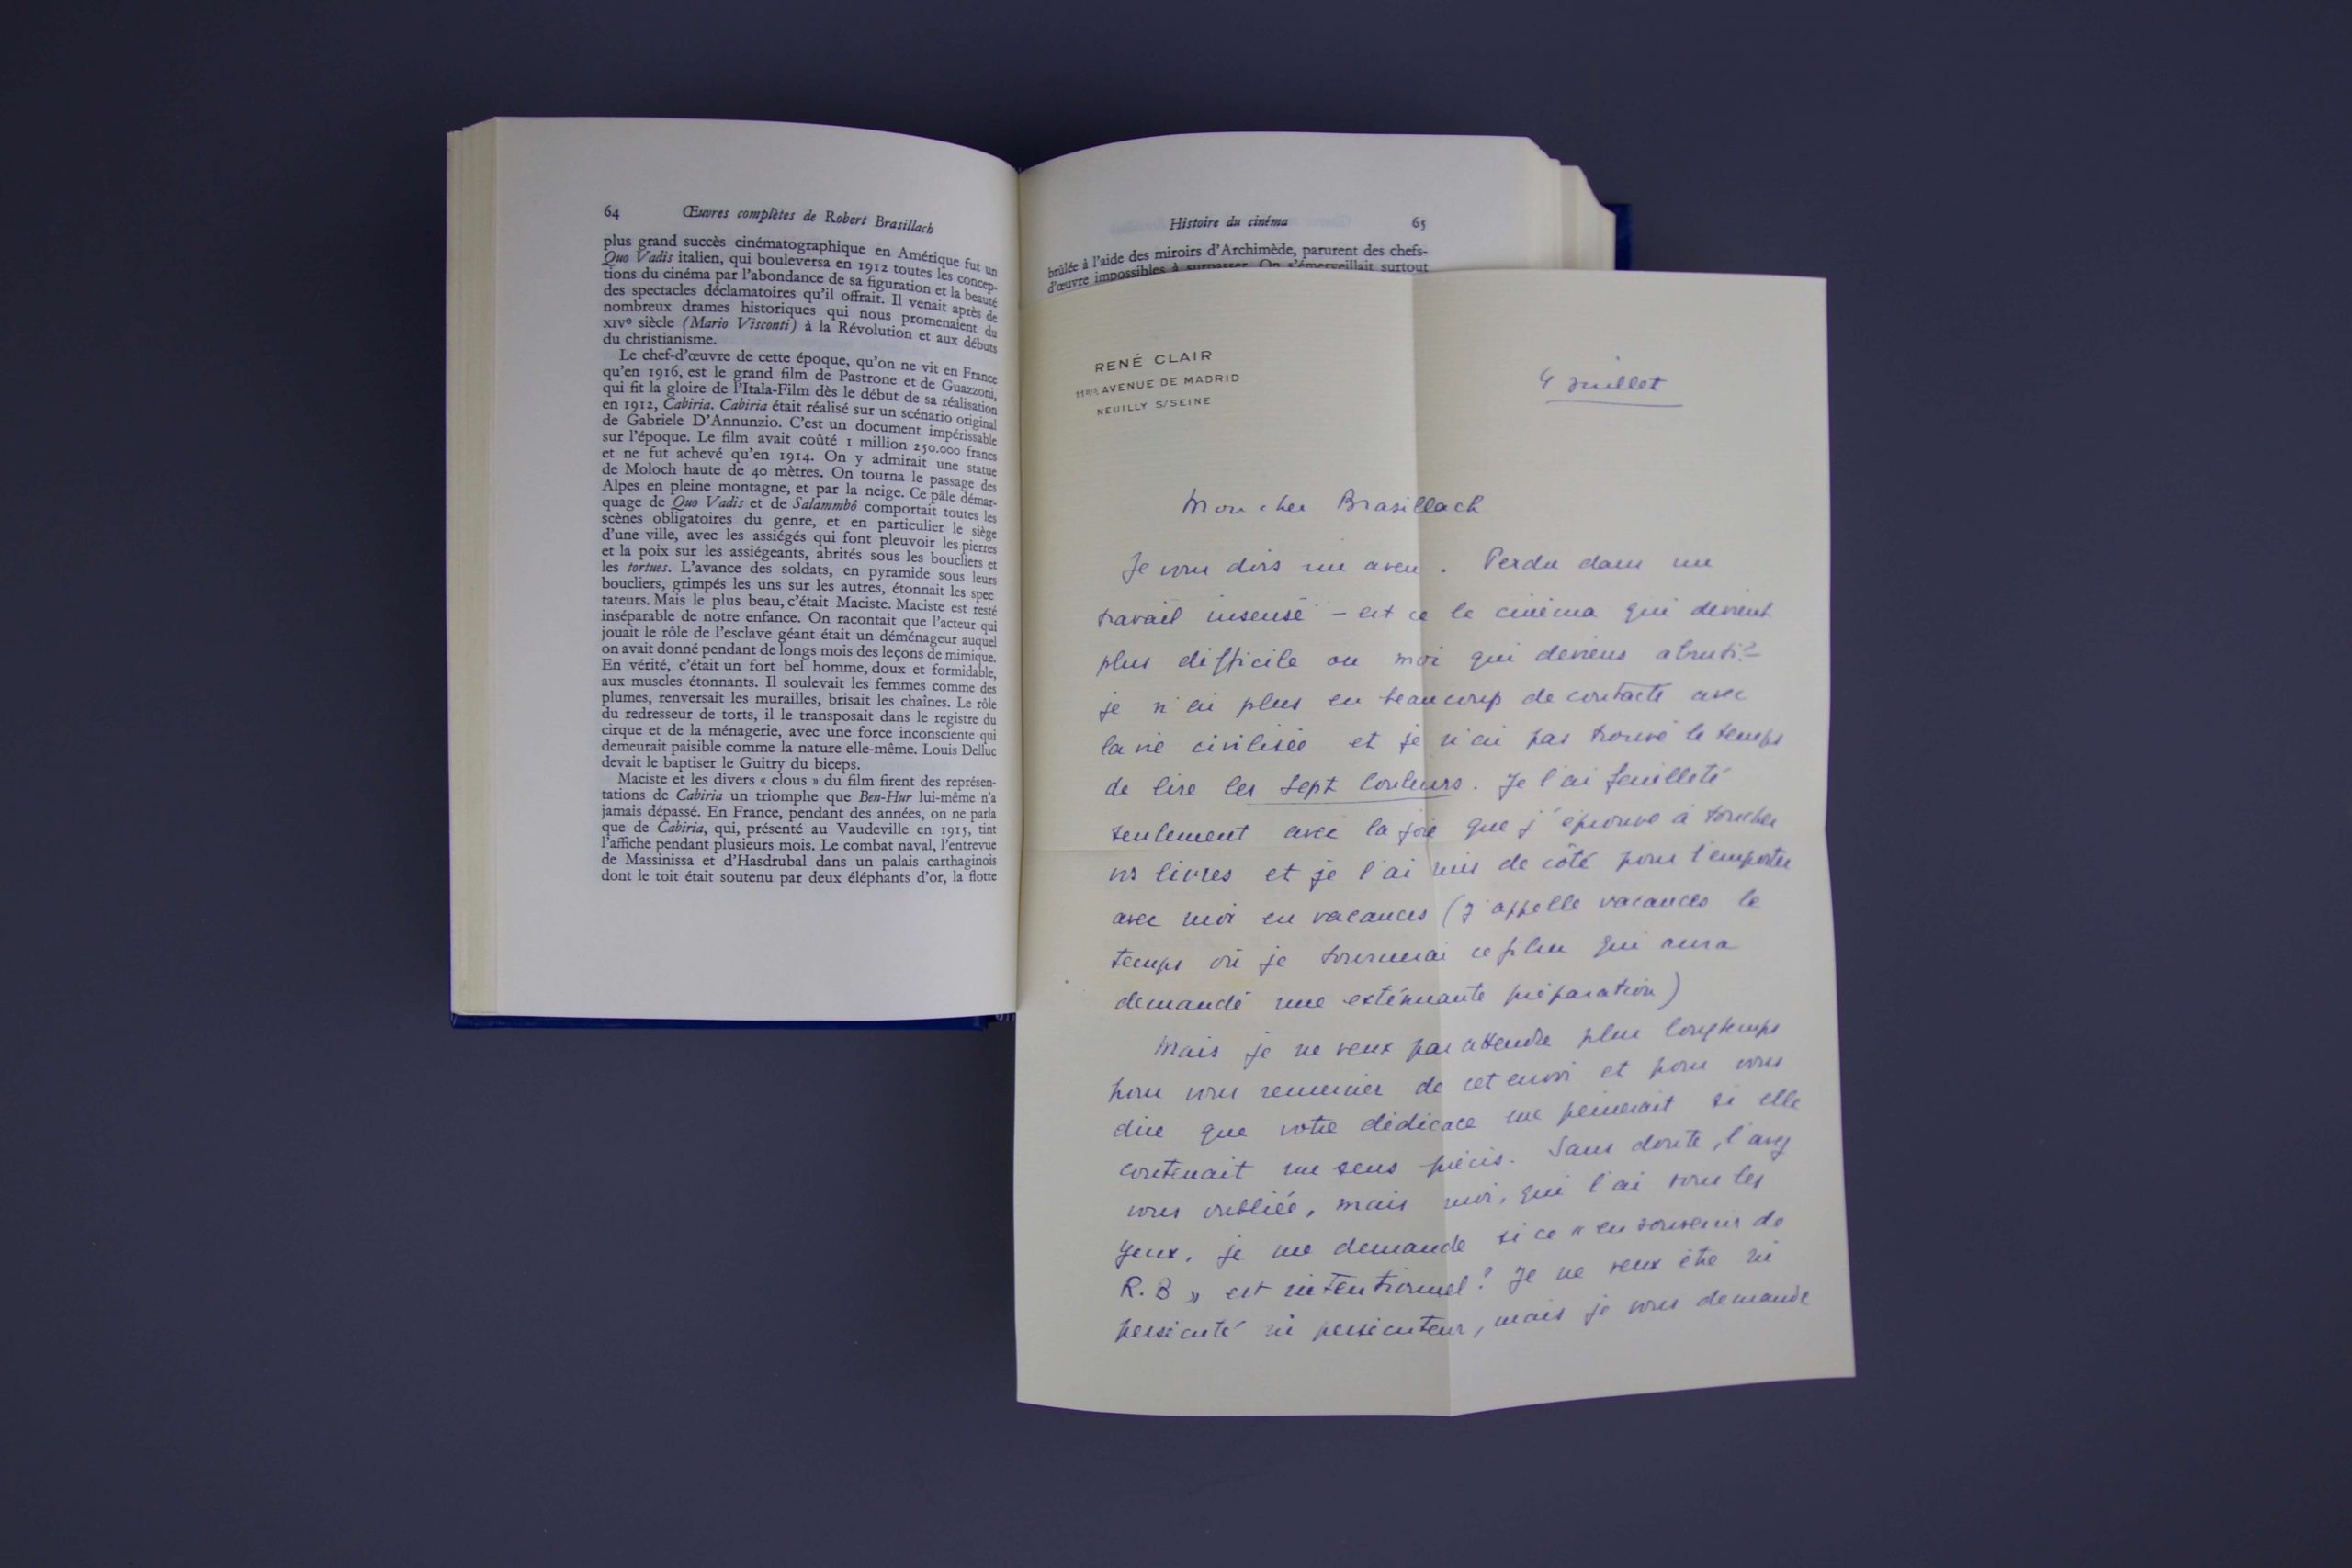 64 Œuvres complètes de Robert Brasillach
plus grand succès cinématographique en Amérique fut un
Quo Vadis italien, qui bouleversa en 1912 toutes les concep-
tions du cinéma par l'abondance de sa figuration et la beauté
des spectacles déclamatoires qu'il offrait. Il venait après de
nombreux drames historiques qui nous promenaient du
XIVe siècle (Mario Visconti) à la Révolution et aux débuts
du christianisme.
Le chef-d'œuvre de cette époque, qu'on ne vit en France
qu'en 1916, est le grand film de Pastrone et de Guazzoni,
qui fit la gloire de l'Itala-Film dès le début de sa réalisation
en 1912, Cabiria. Cabiria était réalisé sur un scénario original
de Gabriele D'Annunzio. C'est un document impérissable
sur l'époque. Le film avait coûté 1 million 250.000 francs
et ne fut achevé qu'en 1914. On y admirait une statue
de Moloch haute de 40 mètres. On tourna le passage des
Alpes en pleine montagne, et par la neige. Ce pâle démar-
quage de Quo Vadis et de Salammbô comportait toutes les
scènes obligatoires du genre, et en particulier le siège
d'une ville, avec les assiégés qui font pleuvoir les pierres
et la poix sur les assiégeants, abrités sous les boucliers et
les tortues. L'avance des soldats, en pyramide sous leurs
boucliers, grimpés les uns sur les autres, étonnait les spec
tateurs. Mais le plus beau, c'était Maciste. Maciste est resté
inséparable de notre enfance. On racontait que l'acteur qui
jouait le rôle de l'esclave géant était un déménageur auquel
on avait donné pendant de longs mois des leçons de mimique.
En vérité, c'était un fort bel homme, doux et formidable,
aux muscles étonnants. Il soulevait les femmes comme des
plumes, renversait les murailles, brisait les chaînes. Le rôle
du redresseur de torts, il le transposait dans le registre du
cirque et de la ménagerie, avec une force inconsciente qui
demeurait paisible comme la nature elle-même. Louis Delluc
devait le baptiser le Guitry du biceps.
Maciste et les divers « clous » du film firent des représen-
tations de Cabiria un triomphe que Ben-Hur lui-même n'a
jamais dépassé. En France, pendant des années, on ne parla
que de Cabiria, qui, présenté au Vaudeville en 1915, tint
l'affiche pendant plusieurs mois. Le combat naval, l'entrevue
de Massinissa et d'Hasdrubal dans un palais carthaginois
dont le toit était soutenu par deux éléphants d'or, la flotte
Histoire du cinéma 65
brûlée à l'aide des miroirs d'Archimède, parurent des chefs-
d'œuvre impossibles à surpasser. On s'émerveillait surtout
RENÉ CLAIR
11BIS AVENUE DE MADRID
NEUILLY S/SEINE
4 Juillet
Mon cher Brasillach
Je vous dois un aveu. Perdu dans un
travail insensé – est ce le cinéma qui devient
plus difficile ou moi qui deviens abruti? –
je n'ai plus eu beaucoup de contacts avec
la vie civilisée et je n'ai pas trouvé le temps
de lire les Sept Couleurs. Je l'ai feuilleté
seulement avec la joie que j'éprouve à toucher
vos livres et je l'ai mis de côté pour l'emporter
avec moi en vacances (j'appelle vacances le
temps où je tournerai ce film qui aura
demandé une exténuante préparation)
Mais je ne veux pas attendre plus longtemps
pour vous remercier de cet envoi et pour vous
dire que votre dédicace me peinerait si elle
contenait un sens précis. Sans doute, l'avez
vous oubliée, mais moi, qui l'ai sous les
yeux, je me demande si ce « en souvenir de
R. B » est intentionnel? Je ne veux être ni
persécuté ni persécuteur, mais je vous demande